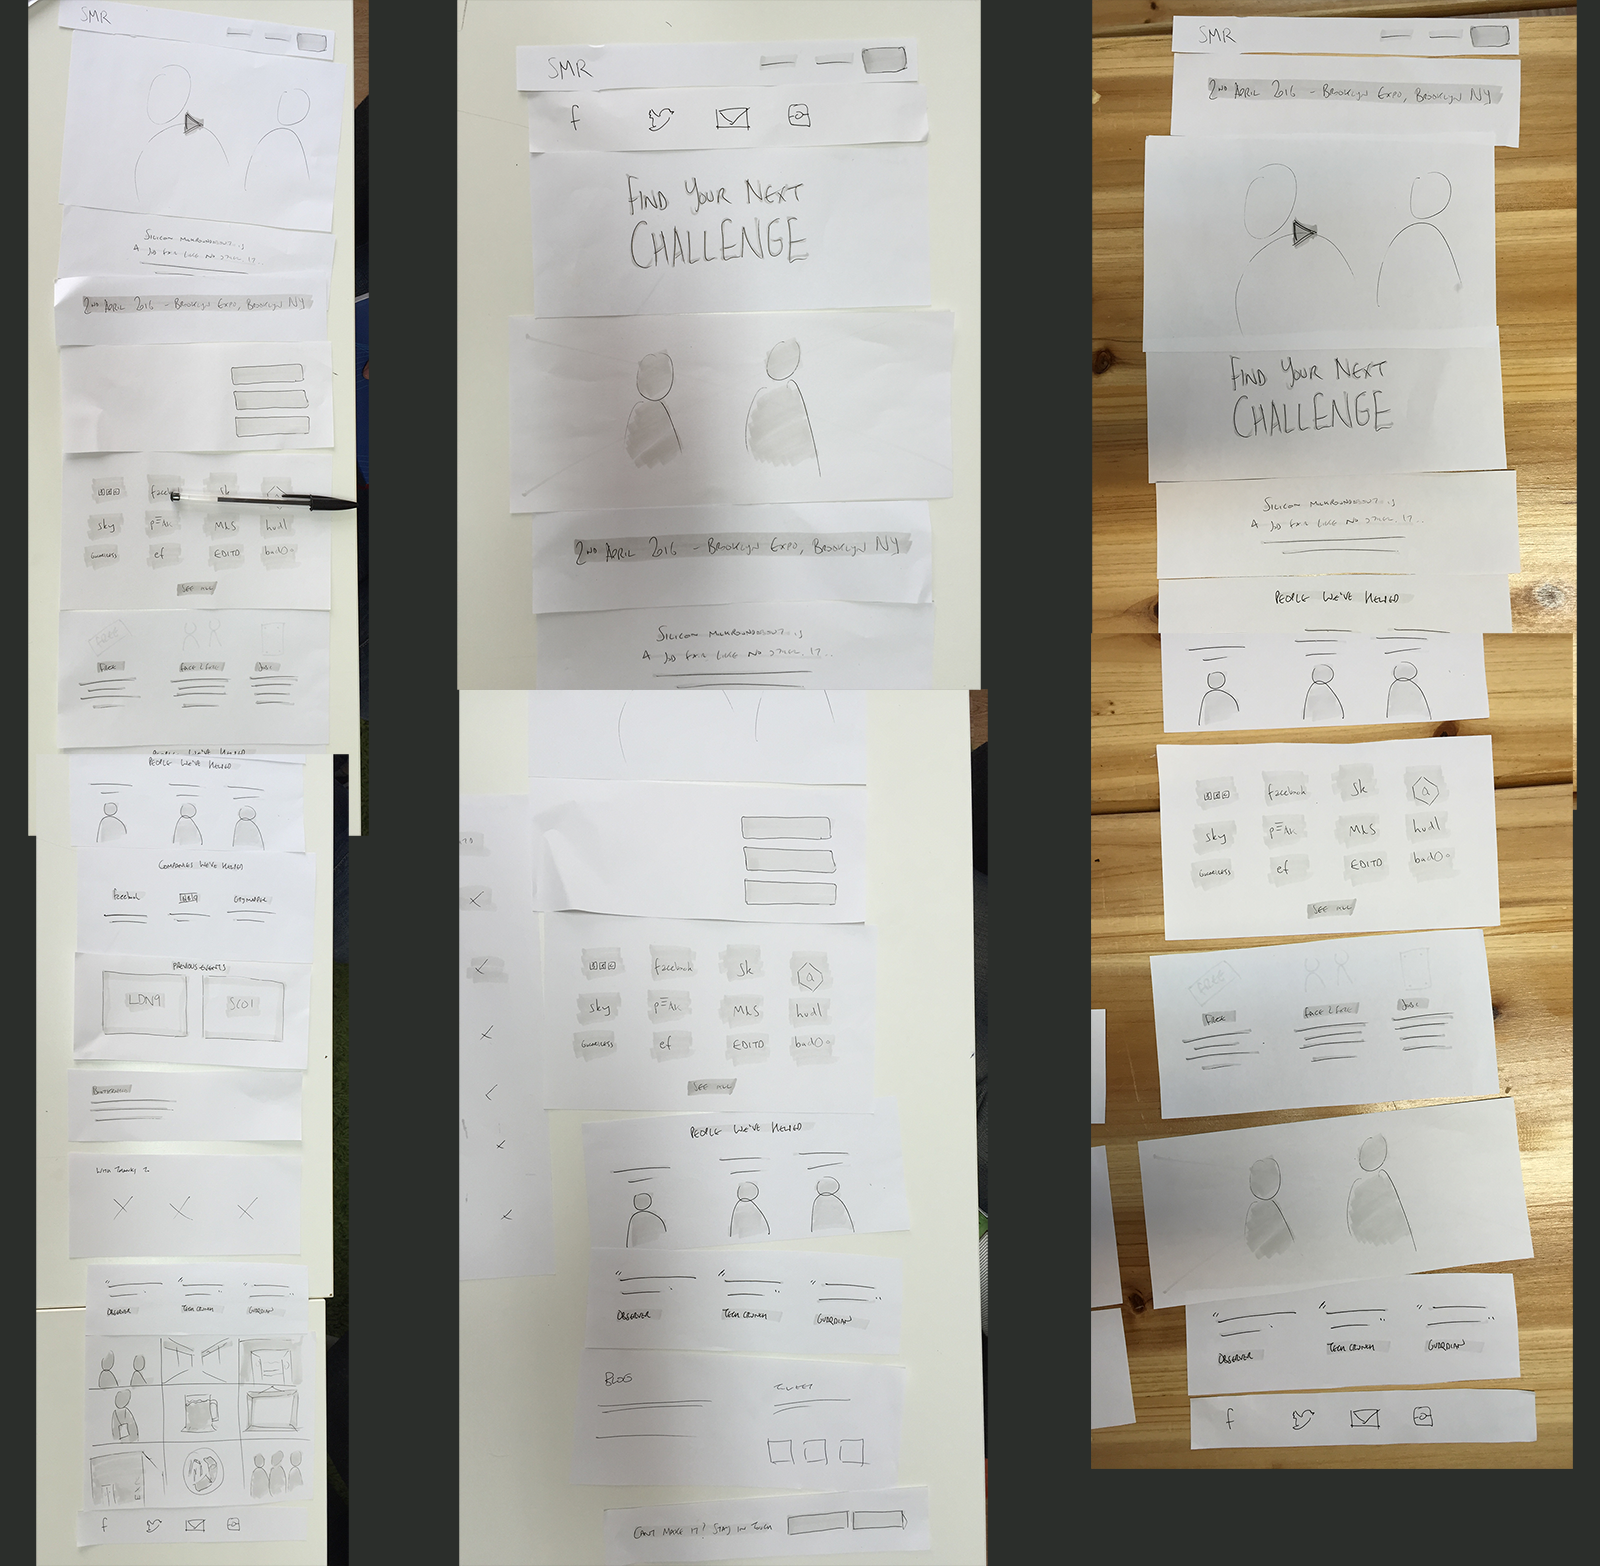 SMR
SILICON MILKROUNDABOUT...
A JOB FAIR LIKE NO OTHER.
2ND APRIL 2016 - BROOKLYN EXPO, BROOKLYN NY
sk
sky
M&S
hudl
ef
EDITD
badoo
SEE ALL
FREE
FREE
FACE 2 FACE
PEOPLE WE'VE HELPED
PEOPLE WE'VE HELPED
COMPANIES WE'VE HELPED
facebook
PREVIOUS EVENTS
LDN9
SCO1
WITH THANKS TO
OBSERVER
TECH CRUNCH
GUARDIAN
f
SMR
f
FIND YOUR NEXT
CHALLENGE
2ND APRIL 2016 - BROOKLYN EXPO, BROOKLYN NY
SILICON MILKROUNDABOUT...
A JOB FAIR LIKE NO OTHER.
facebook
sk
a
sky
M&S
hudl
ef
EDITD
badoo
SEE ALL
PEOPLE WE'VE HELPED
OBSERVER
TECH CRUNCH
GUARDIAN
BLOG
CAN'T MAKE IT? STAY IN TOUCH
SMR
2ND APRIL 2016 - BROOKLYN EXPO, BROOKLYN NY
FIND YOUR NEXT
CHALLENGE
SILICON MILKROUNDABOUT...
A JOB FAIR LIKE NO OTHER.
PEOPLE WE'VE HELPED
facebook
sk
a
sky
M&S
hudl
ef
EDITD
badoo
SEE ALL
FREE
FREE
FACE 2 FACE
OBSERVER
TECH CRUNCH
GUARDIAN
f